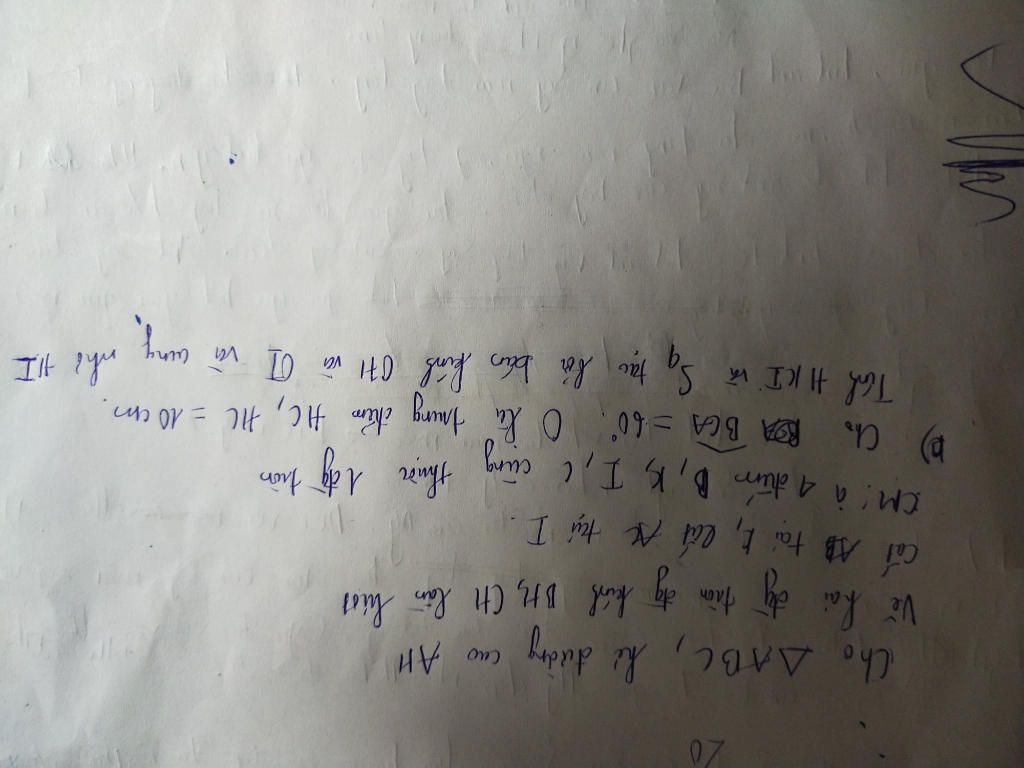 20
Cho △ABC, kẻ đường cao AH
Vẽ hai đg tròn đg kính BH, CH lần lượt
Cắt AB tại K, Cắt AC tại I.
CM: a 4 điểm B, K, I, C cùng thuộc 1 đg tròn
b) Cho BCA = 60°. O là trung điểm HC, HC = 10 cm.
Tính HKI và Sq tạo bởi bán kính OH và OI và cung nhỏ HI